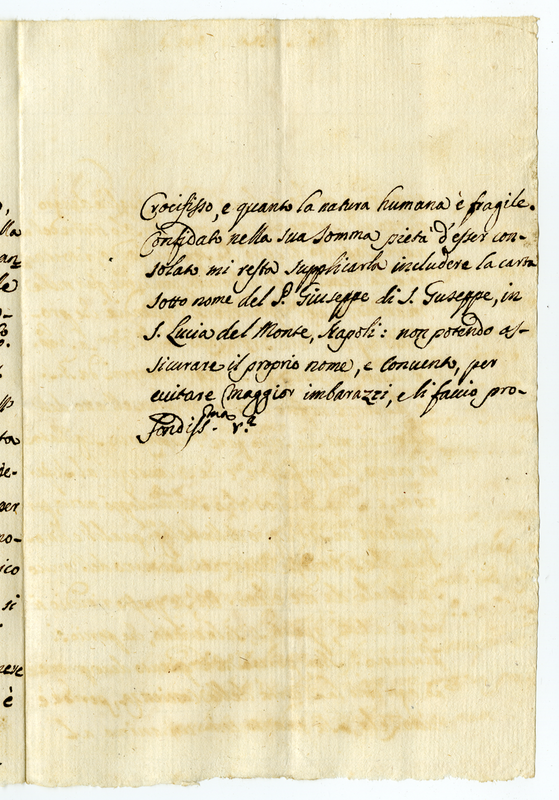 Crocifisso, e quanto la natura humana è fragile.
Confidato nella sua somma pietà d'esser con-
solato mi resta supplicarla includere la carta
sotto nome del P. Giuseppe di S. Guseppe, in
S. Lucia del Monte, Napoli: non potendo as-
sicurare il proprio nome, e convento, per
evitare maggior imbarazzi, e li faccio pro-
fondiss.ma r.a
lla
an
le
ta
de-
per
no-
ico
si
nese
è